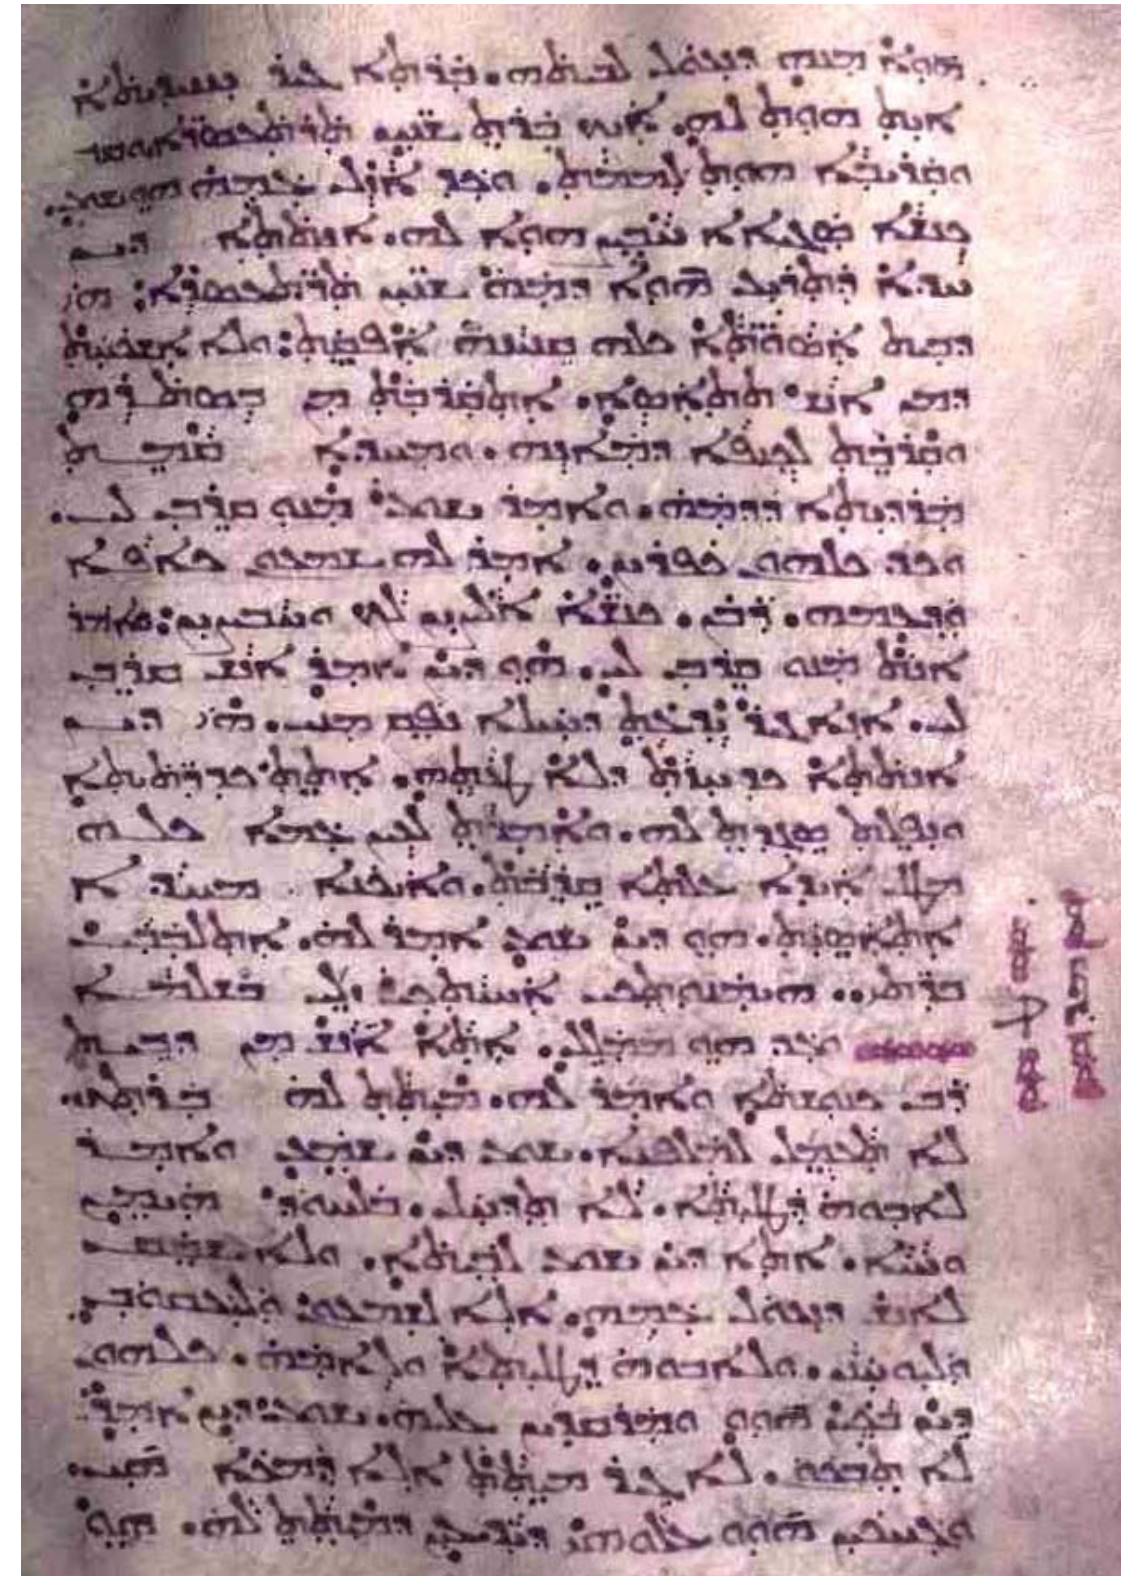 ܗܘܐ ܡܢܗ ܕܢܥܘܠ ܠܒܝܬܗ. ܒܪܬܐ ܓܝܪ ܝܚܝܕܝܬܐ
ܐܝܬ ܗܘܬ ܠܗ. ܐܝܟ ܒܪܬ ܫܢܝܢ ܬܪܬܥܣܪܐ
ܘܩܪܝܒܐ ܗܘܬ ܠܡܡܬ. ܘܟܕ ܐܙܠ ܥܡܗ ܗܘ ܝܫܘܥ.
ܟܢܫܐ ܣܓܝܐܐ ܚܒܨ ܗܘܐ ܠܗ. ܐܢܬܬܐ ܕܝܢ
ܚܕܐ ܕܬܪܝܥ ܗܘܐ ܕܡܗ ܫܢܝܢ ܬܪܬܥܣܪܐ: ܗܝ
ܕܒܝܬ ܐܣܘܬܐ ܟܠܗ ܩܢܝܢܗ ܐܦܩܬ: ܘܠܐ ܐܫܟܚܬ
ܕܡܢ ܐܢܫ ܬܬܐܣܐ. ܐܬܩܪܒܬ ܡܢ ܒܣܬܪܗ
ܘܩܪܒܬ ܠܟܢܦܐ ܕܡܐܢܗ. ܘܡܚܕܐ ܩܡܬ
ܡܪܕܝܬܐ ܕܕܡܗ. ܘܐܡܪ ܝܫܘܥ ܡܢܘ ܩܪܒ ܠܝ.
ܘܟܕ ܟܠܗܘܢ ܟܦܪܝܢ. ܐܡܪ ܠܗ ܫܡܥܘܢ ܟܐܦܐ
ܘܕܥܡܗ. ܪܒܢ. ܟܢܫܐ ܐܠܨܝܢ ܠܟ ܘܚܒܨܝܢ: ܘܐܡܪ
ܐܢܬ ܡܢܘ ܩܪܒ ܠܝ. ܗܘ ܕܝܢ ܐܡܪ ܐܢܫ ܩܪܒ
ܠܝ. ܐܢܐ ܓܝܪ ܝܕܥܬ ܕܚܝܠܐ ܢܦܩ ܡܢܝ. ܗܝ ܕܝܢ
ܐܢܬܬܐ ܟܕ ܚܙܬ ܕܠܐ ܛܥܬܗ. ܐܬܬ ܟܕ ܪܬܝܬܐ
ܘܢܦܠܬ ܣܓܕܬ ܠܗ. ܘܐܡܪܬ ܠܥܝܢ ܥܡܐ ܟܠܗ
ܡܛܠ ܐܝܕܐ ܥܠܬܐ ܩܪܒܬ. ܘܐܝܟܢܐ ܡܚܕܐ
ܐܬܐܣܝܬ. ܗܘ ܕܝܢ ܝܫܘܥ ܐܡܪ ܠܗ. ܐܬܠܒܒܝ
ܒܪܬܝ. ܗܝܡܢܘܬܟܝ ܐܚܝܬܟܝ. ܙܠܝ ܒܫܠܡܐ
ܘܥܕ ܗܘ ܡܡܠܠ. ܐܬܐ ܐܢܫ ܡܢ ܕܒܝܬ
ܪܒ ܟܢܘܫܬܐ ܘܐܡܪ ܠܗ. ܡܝܬܬ ܠܗ ܒܪܬܟ.
ܠܐ ܬܥܡܠ ܠܡܠܦܢܐ. ܝܫܘܥ ܕܝܢ ܫܡܥ ܘܐܡܪ
ܠܐܒܘܗ ܕܛܠܝܬܐ. ܠܐ ܬܕܚܠ. ܒܠܚܘܕ ܗܝܡܢ
ܘܚܝܐ. ܐܬܐ ܕܝܢ ܝܫܘܥ ܠܒܝܬܐ. ܘܠܐ ܫܒܩ
ܠܐܢܫ ܕܢܥܘܠ ܥܡܗ. ܐܠܐ ܠܫܡܥܘܢ ܘܠܝܥܩܘܒ
ܘܠܝܘܚܢܢ. ܘܠܐܒܘܗ ܕܛܠܝܬܐ ܘܠܐܡܗ. ܟܠܗܘܢ
ܕܝܢ ܒܟܝܢ ܗܘܘ ܘܡܪܩܕܝܢ ܥܠܝܗ. ܝܫܘܥ ܕܝܢ ܐܡܪ.
ܠܐ ܬܒܟܘܢ. ܠܐ ܓܝܪ ܡܝܬܬ ܐܠܐ ܕܡܟܐ ܗܝ.
ܘܓܚܟܝܢ ܗܘܘ ܥܠܘܗܝ ܕܝܕܥܝܢ ܕܡܝܬܬ ܠܗ. ܗܘ